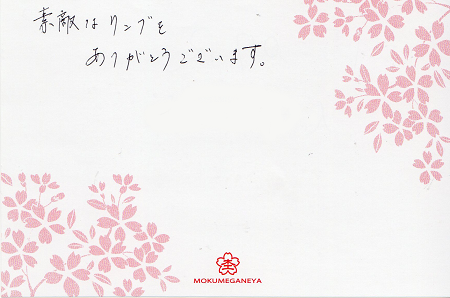 素敵なリングを
ありがとうございます。
MOKUMEGANEYA